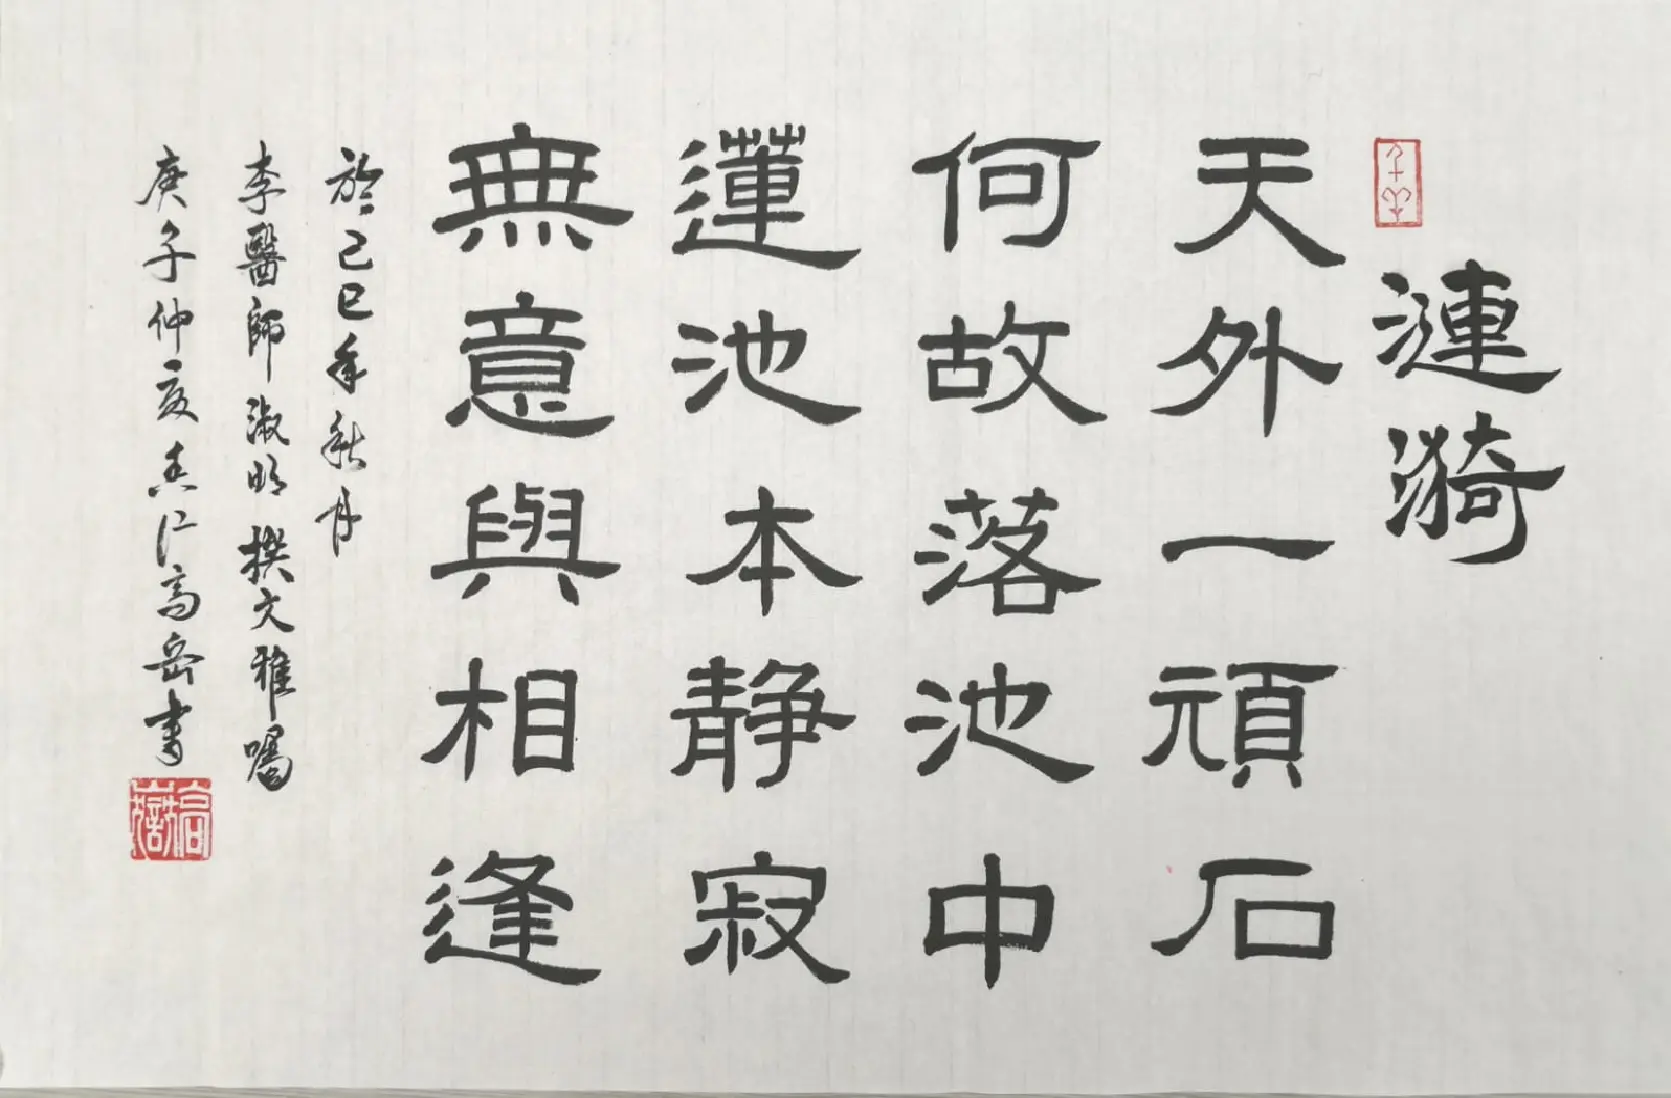 漣漪
天外一頑石
何故落池中
蓮池本静寂
無意與相逢
於己巳年秋月
李醫師淑明撰文雅囑
庚子仲夏杏仁高岳書